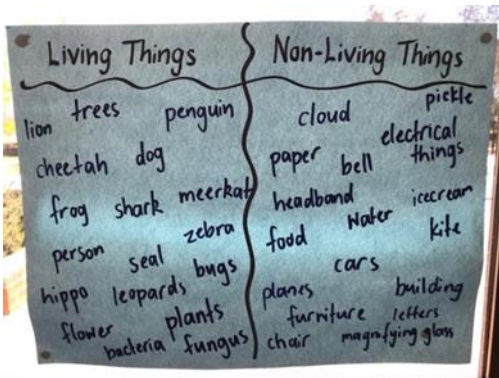 Living Things
Non-Living Things
lion trees penguin
cheetah dog
frog shark meerkat
person seal zebra
hippo leopards bugs
flower plants
bacteria fungus
cloud pickle
paper bell electrical
things
headband icecream
food water kite
cars
planes building
furniture letters
chair magnifying glass